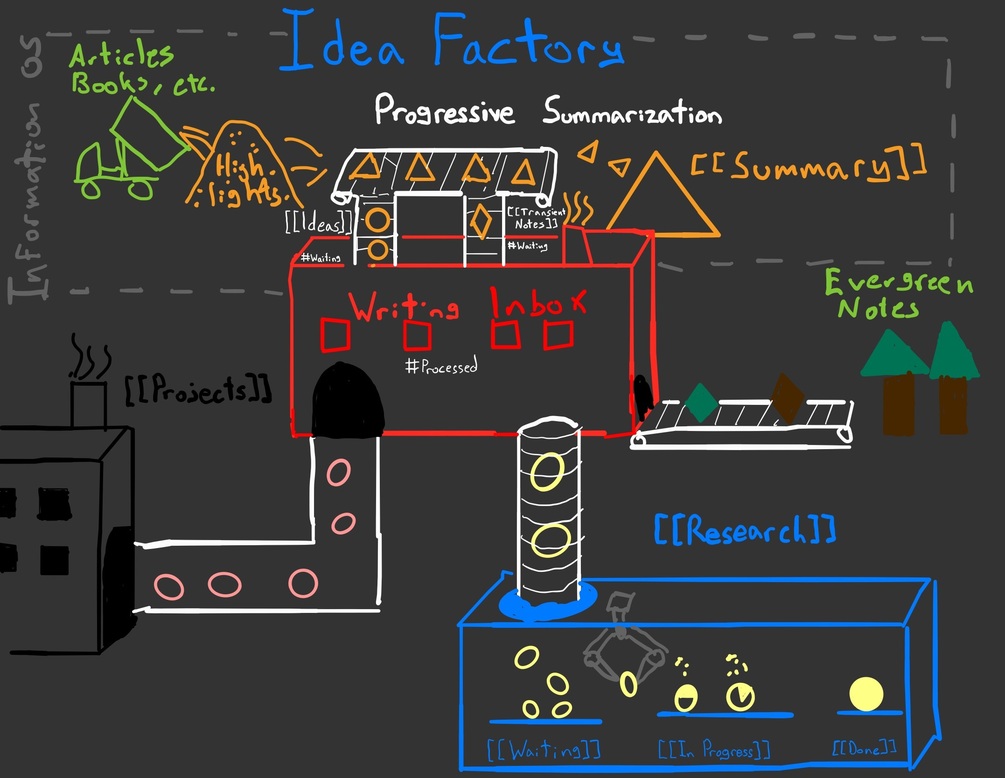 Idea Factory
Information OS
Articles
Books, etc.
Progressive Summarization
High
lights.
[[Summary]]
[[Ideas]]
[[Transient
Notes]]
#Waiting
#Waiting
Evergreen
Notes
Writing Inbox
#Processed
[[Projects]]
[[Research]]
[[Waiting]]
[[In Progress]]
[[Done]]